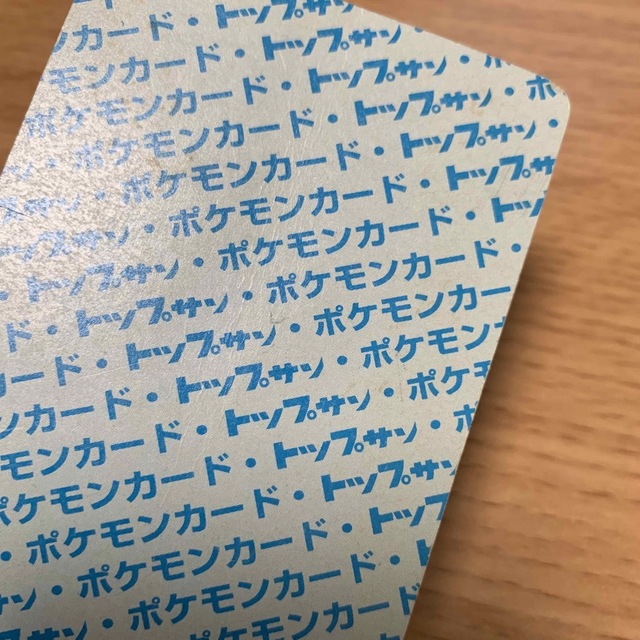 カード・トップサン
モンカード・トップサン
ポケモンカード・トップサン・ポ
ポケモンカード・トップサン・
・ポケモンカード・トップサン
・ポケモンカード・トップ
・ポケモンカード・ト
トップサン・ポケモンカード・
・トップサン・ポケモンカー
ド・トップサン・ポケモン
ード・トップサン・ポケモ
ンカード・トップサン・ポ
モンカード・トップサン
ポケモンカード・トップ
・ポケモンカード・ト
サン・ポケモンカード
トップサン・ポケモン